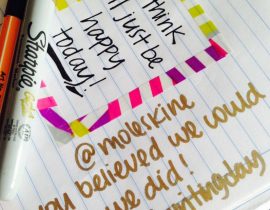 think
I'll just be
happy
today!
Sharpie
@moleskine
you believed we could
we did!
writingday